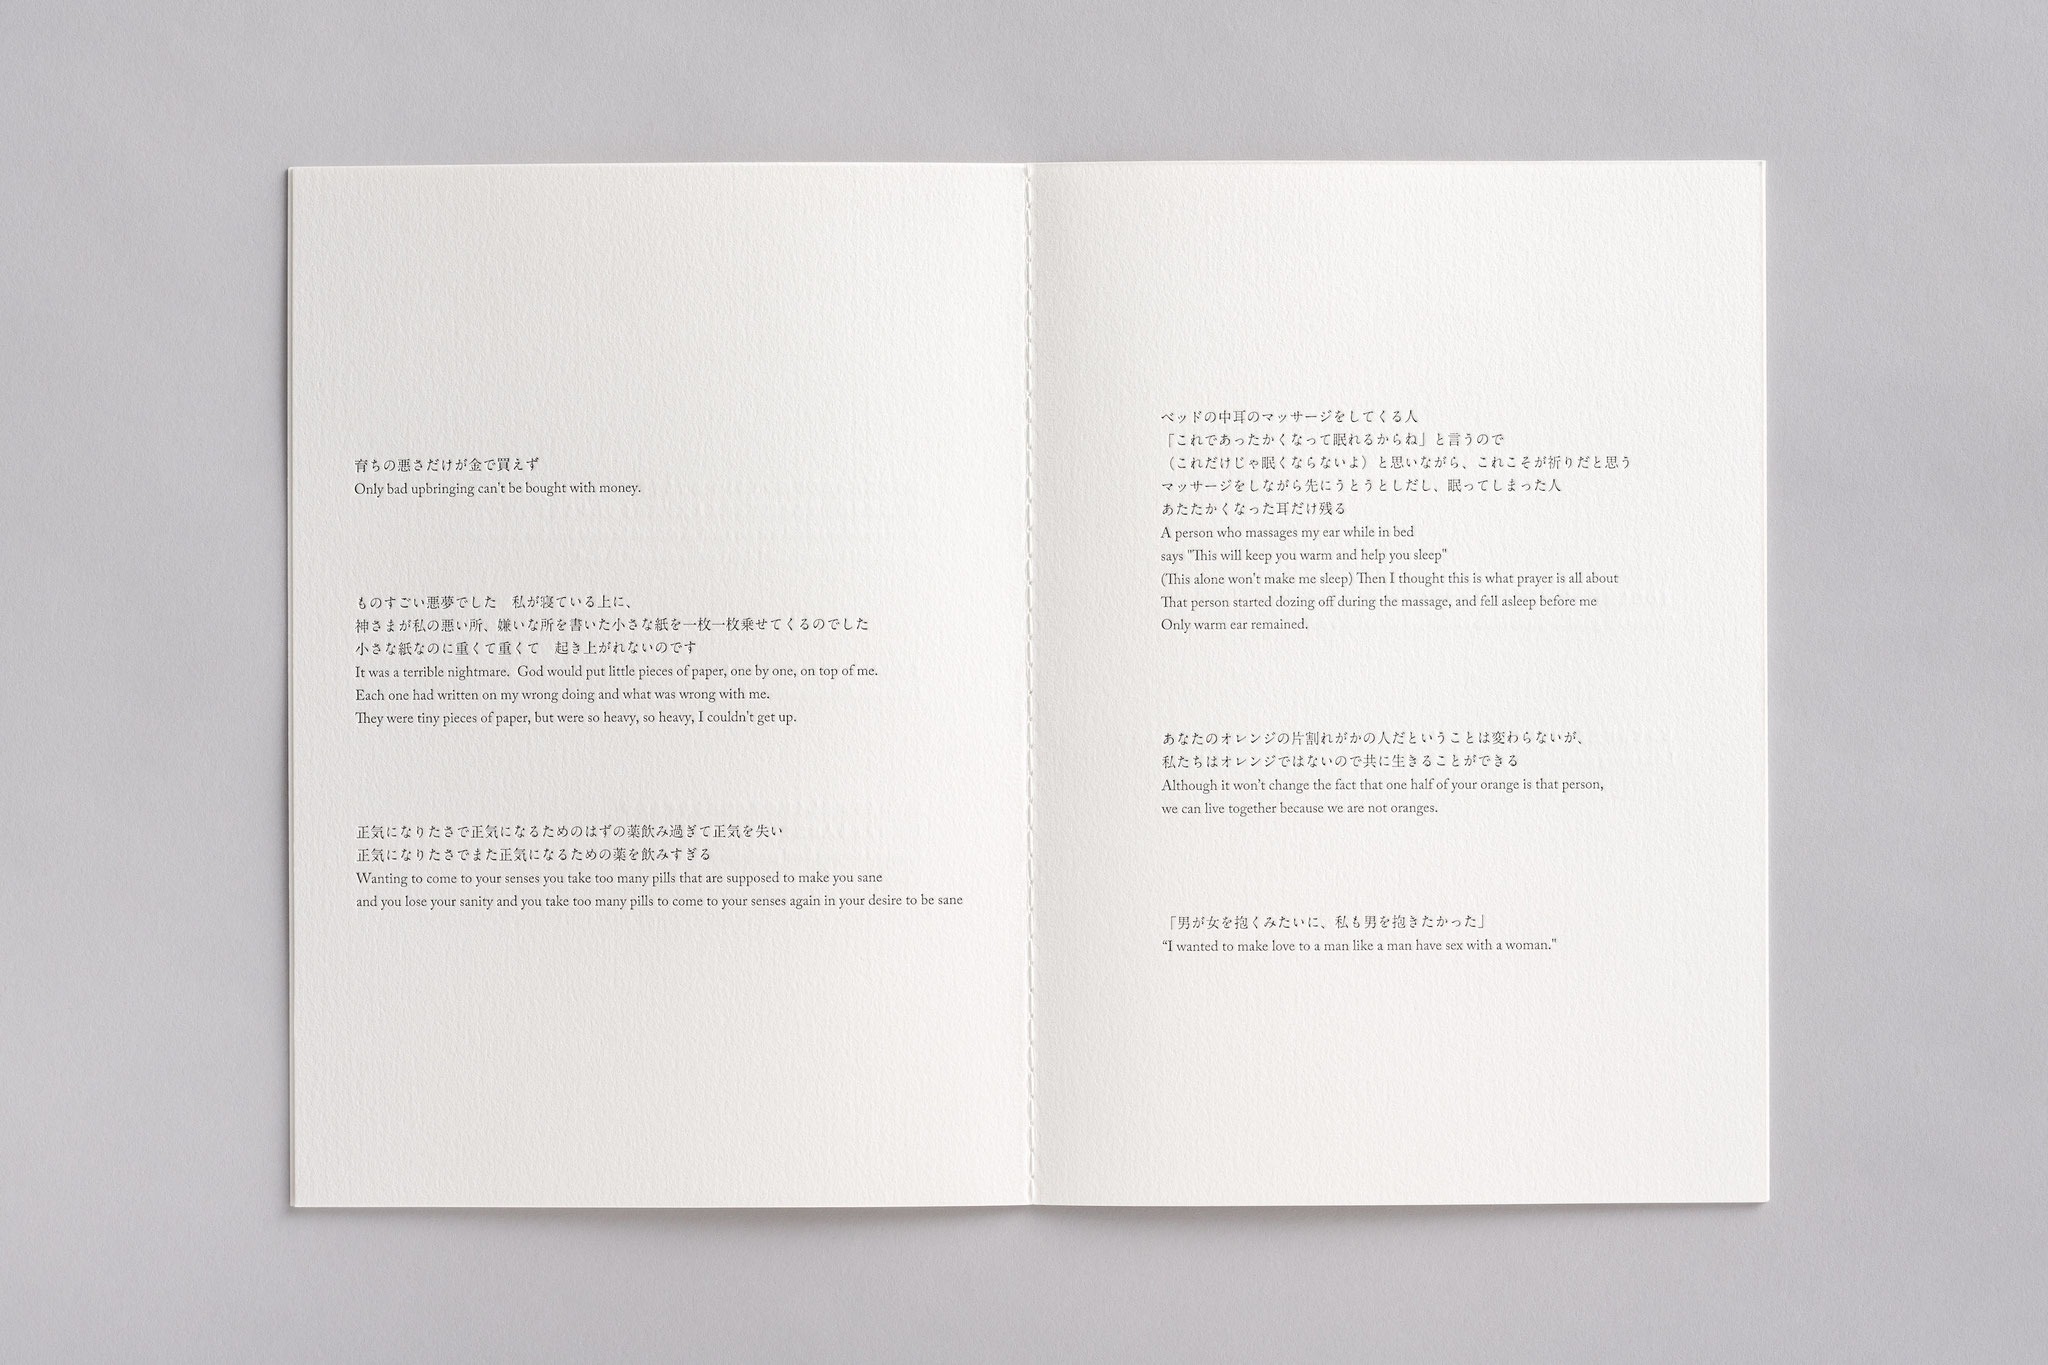 育ちの悪さだけが金で買えず
Only bad upbringing can't be bought with money.
ものすごい悪夢でした　私が寝ている上に、
神さまが私の悪い所、嫌いな所を書いた小さな紙を一枚一枚乗せてくるのでした
小さな紙なのに重くて重くて　起き上がれないのです
It was a terrible nightmare.  God would put little pieces of paper, one by one, on top of me.
Each one had written on my wrong doing and what was wrong with me.
They were tiny pieces of paper, but were so heavy, so heavy, I couldn't get up.
正気になりたさで正気になるためのはずの薬飲み過ぎて正気を失い
正気になりたさでまた正気になるための薬を飲みすぎる
Wanting to come to your senses you take too many pills that are supposed to make you sane
and you lose your sanity and you take too many pills to come to your senses again in your desire to be sane
ベッドの中耳のマッサージをしてくる人
「これであったかくなって眠れるからね」と言うので
（これだけじゃ眠くならないよ）と思いながら、これこそが祈りだと思う
マッサージをしながら先にうとうとしだし、眠ってしまった人
あたたかくなった耳だけ残る
A person who massages my ear while in bed
says "This will keep you warm and help you sleep"
(This alone won't make me sleep) Then I thought this is what prayer is all about
That person started dozing off during the massage, and fell asleep before me
Only warm ear remained.
あなたのオレンジの片割れがかの人だということは変わらないが、
私たちはオレンジではないので共に生きることができる
Although it won't change the fact that one half of your orange is that person,
we can live together because we are not oranges.
「男が女を抱くみたいに、私も男を抱きたかった」
“I wanted to make love to a man like a man have sex with a woman."